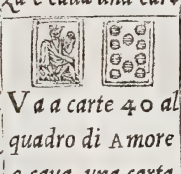 e caua una car
Va a carte 40 al
quadro di Amore
e caua una carta